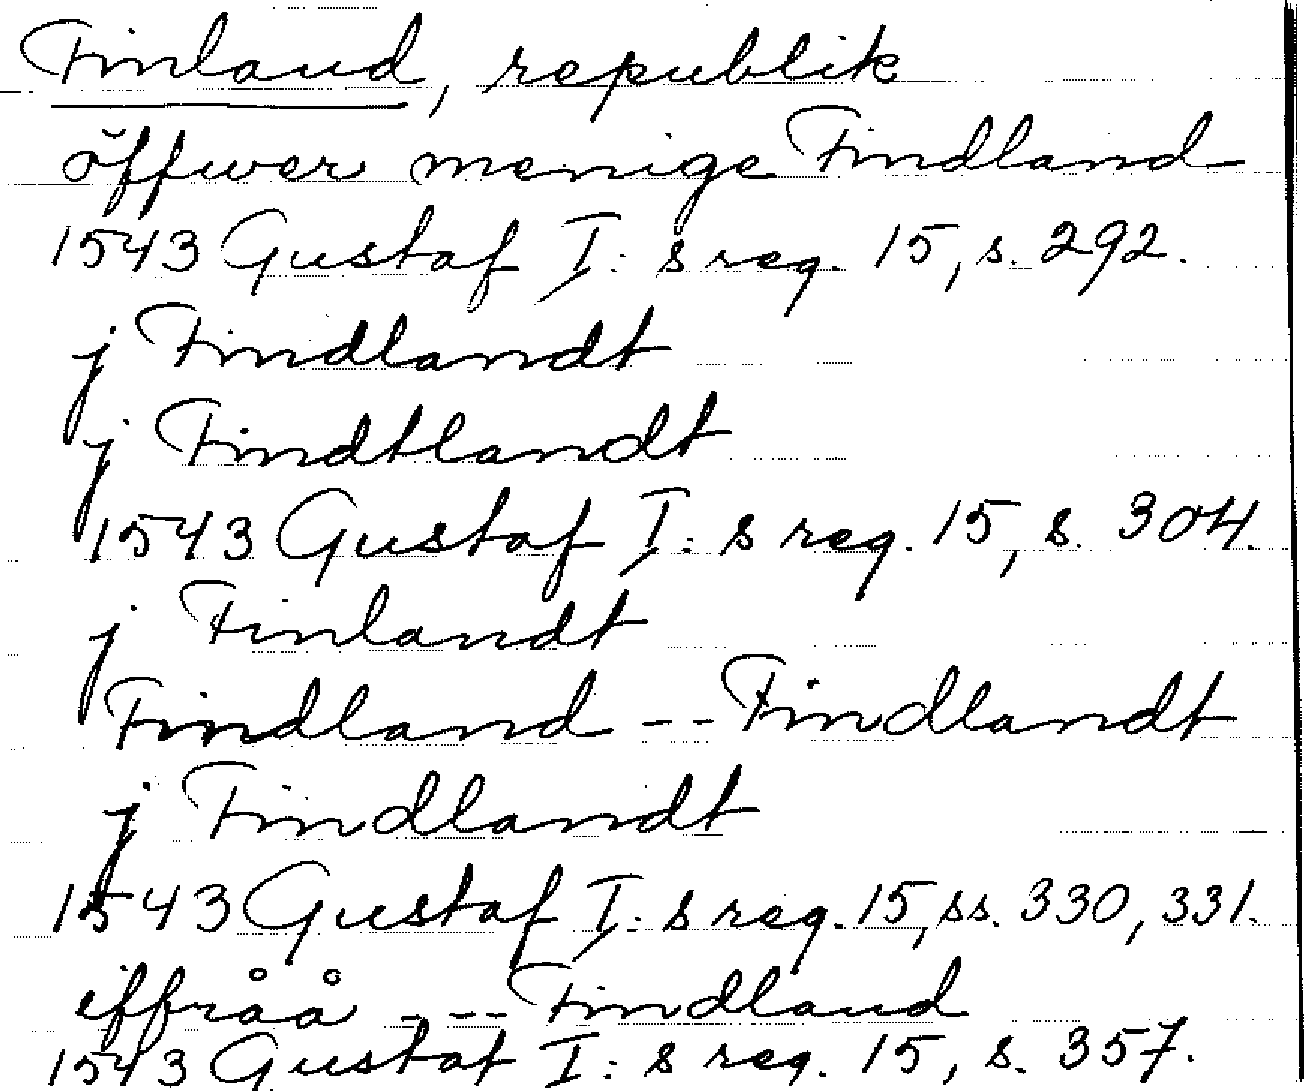 Finland, republik
öffwer menige Findland
1543 Gustaf I:s reg. 15, s. 292.
j Findlandt
j Findtlandt
1543 Gustaf I:s reg. 15, s. 304.
j Finlandt
Findland -- Findlandt
j Findlandt
1543 Gustaf I:s reg. 15, ss. 330, 331.
iffråå --- Findland
1543 Gustaf I:s reg. 15, s. 357.